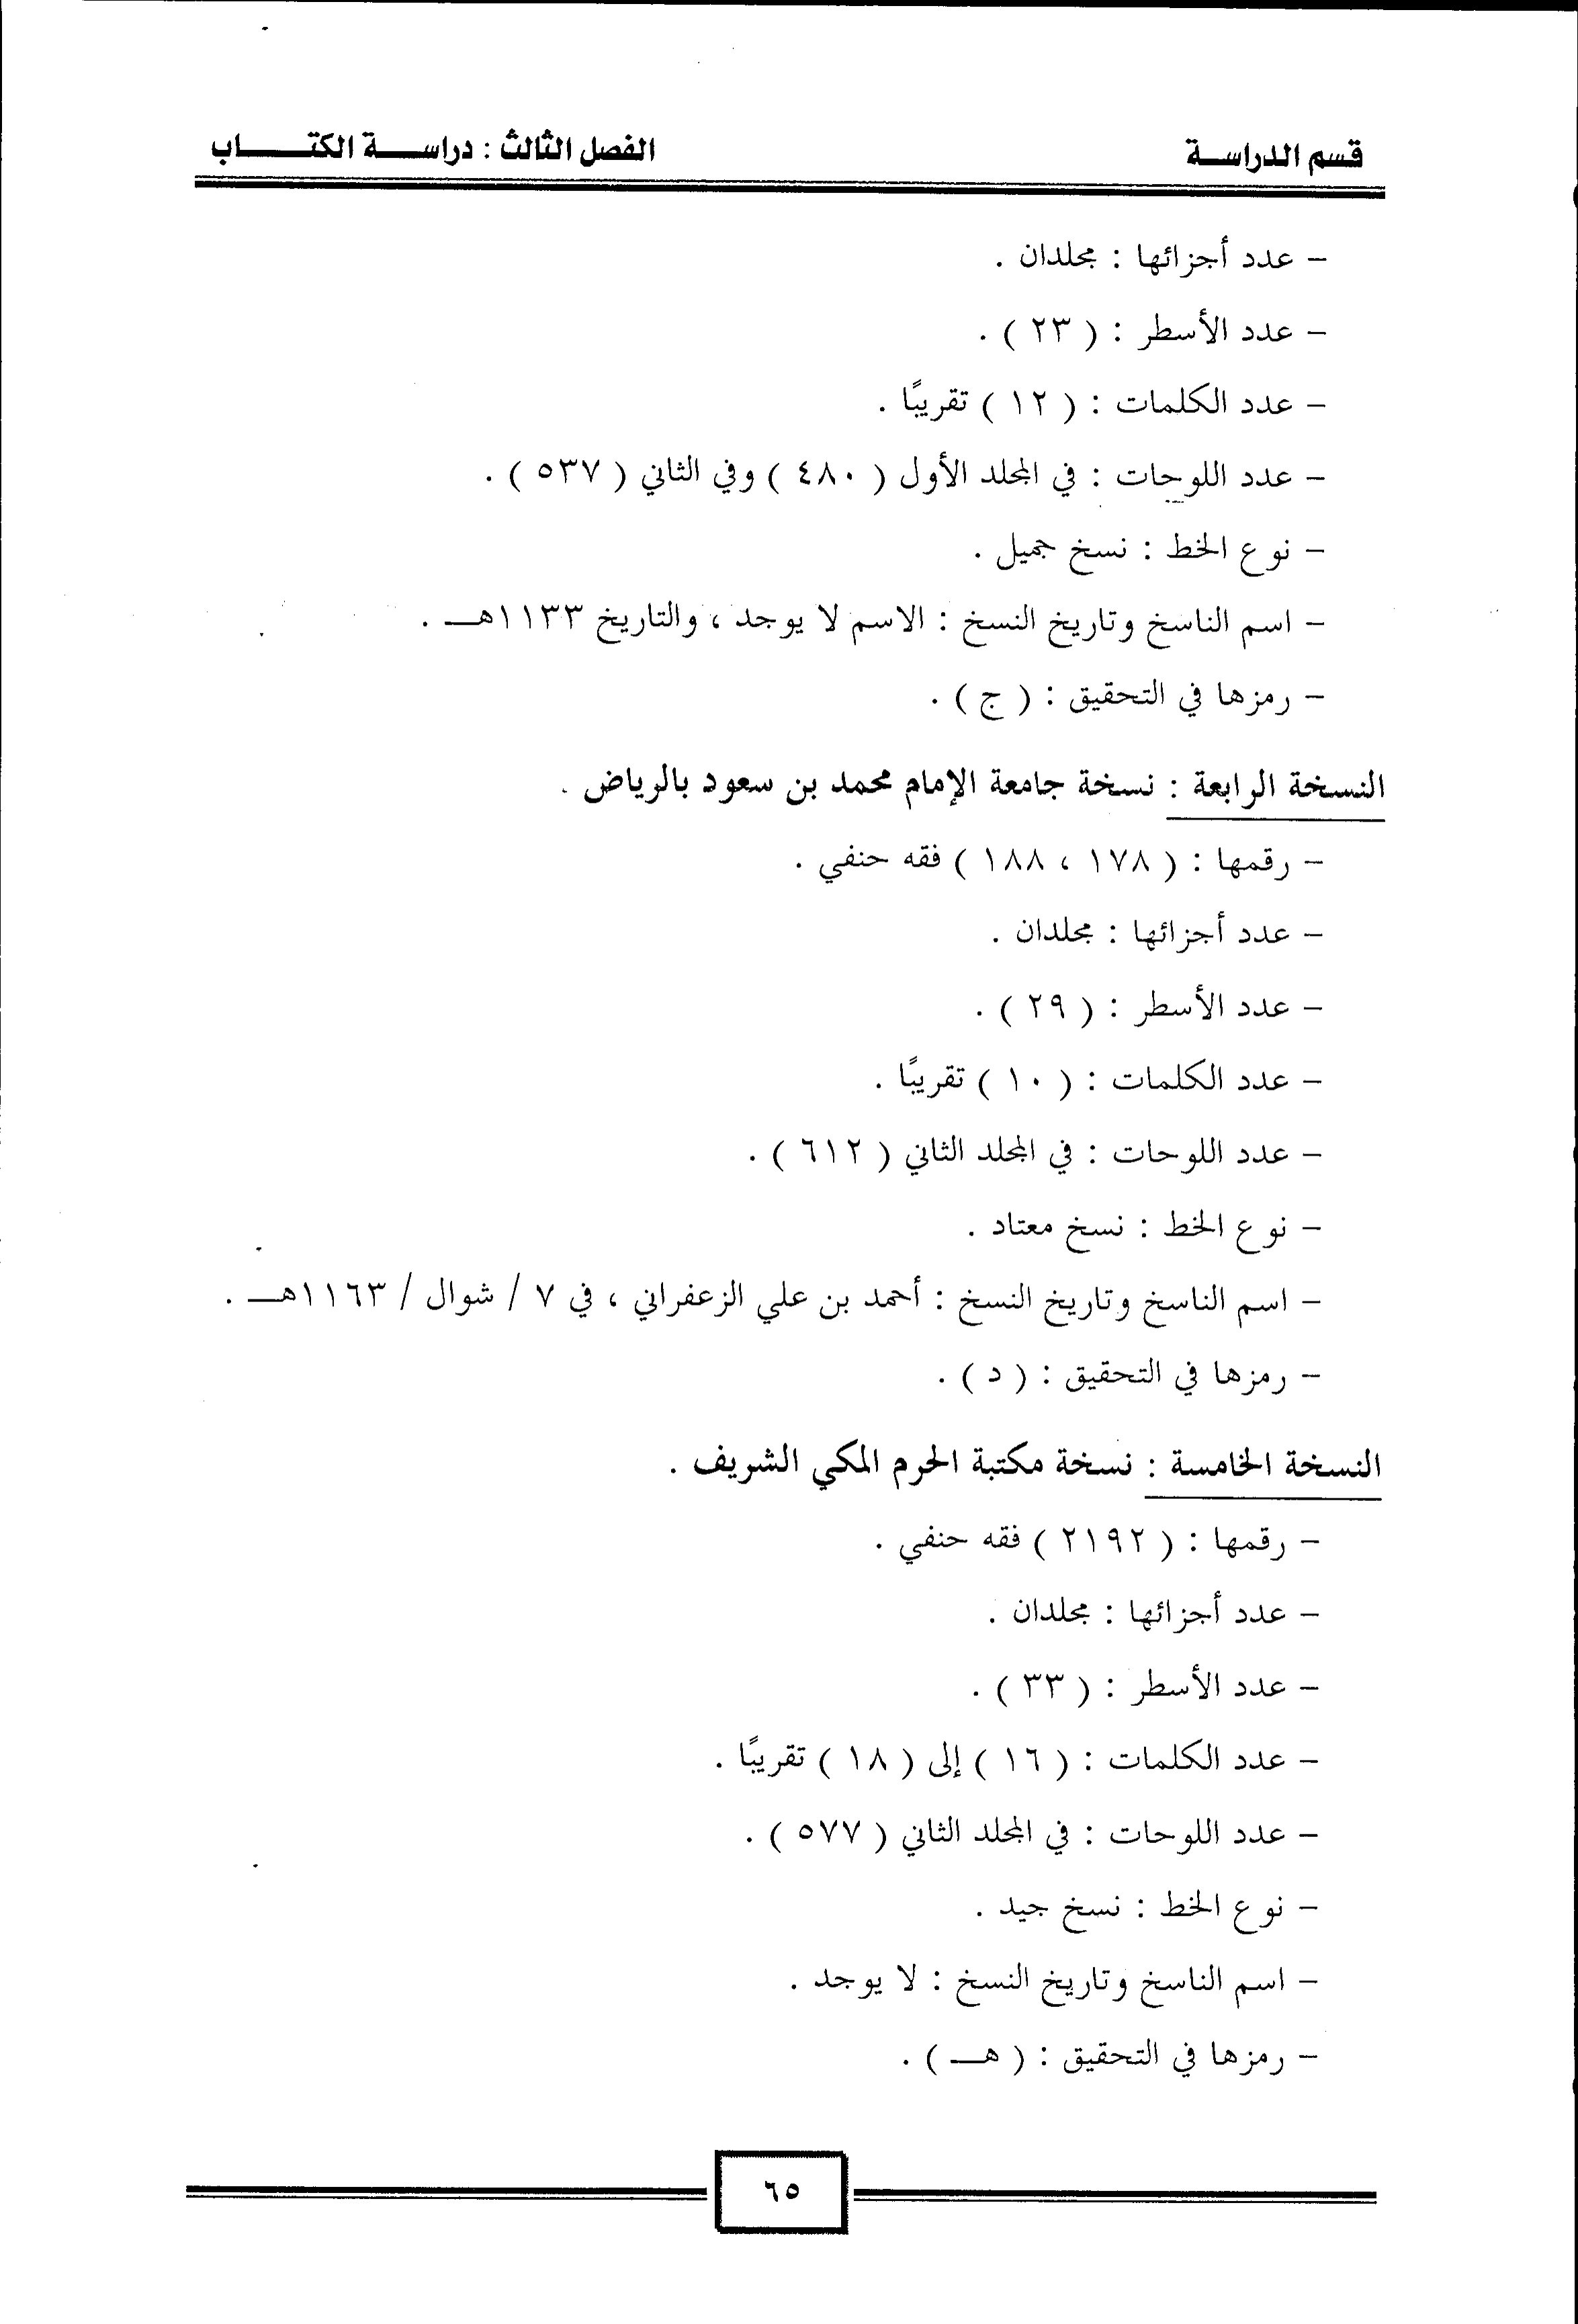 قسم الدراســة
الفصل الثالث : دراســـة الكتـــــاب
– عدد أجزائها : مجلدان .
– عدد الأسطر : ( ٢٣ ) .
– عدد الكلمات : ( ١٢ ) تقريبًا .
– عدد اللوحات : في المجلد الأول ( ٤٨٠ ) وفي الثاني ( ٥٣٧ ) .
– نوع الخط : نسخ جميل .
– اسم الناسخ وتاريخ النسخ : الاسم لا يوجد ، والتاريخ ١١٣٣هـــ .
– رمزها في التحقيق : ( ج ) .
النسخة الرابعة : نسخة جامعة الإمام محمد بن سعود بالرياض .
– رقمها : ( ١٧٨ ، ١٨٨ ) فقه حنفي .
– عدد أجزائها : مجلدان .
– عدد الأسطر : ( ٢٩ ) .
– عدد الكلمات : ( ١٠ ) تقريبًا .
– عدد اللوحات : في المجلد الثاني ( ٦١٢ ) .
– نوع الخط : نسخ معتاد .
– اسم الناسخ وتاريخ النسخ : أحمد بن علي الزعفراني ، في ٧ / شوال / ١١٦٣هـــ .
– رمزها في التحقيق : ( د ) .
النسخة الخامسة : نسخة مكتبة الحرم المكي الشريف .
– رقمها : ( ٢١٩٢ ) فقه حنفي .
– عدد أجزائها : مجلدان .
– عدد الأسطر : ( ٣٣ ) .
– عدد الكلمات : ( ١٦ ) إلى ( ١٨ ) تقريبًا .
– عدد اللوحات : في المجلد الثاني ( ٥٧٧ ) .
– نوع الخط : نسخ جيد .
– اسم الناسخ وتاريخ النسخ : لا يوجد .
– رمزها في التحقيق : ( هـــ ) .
٦٥